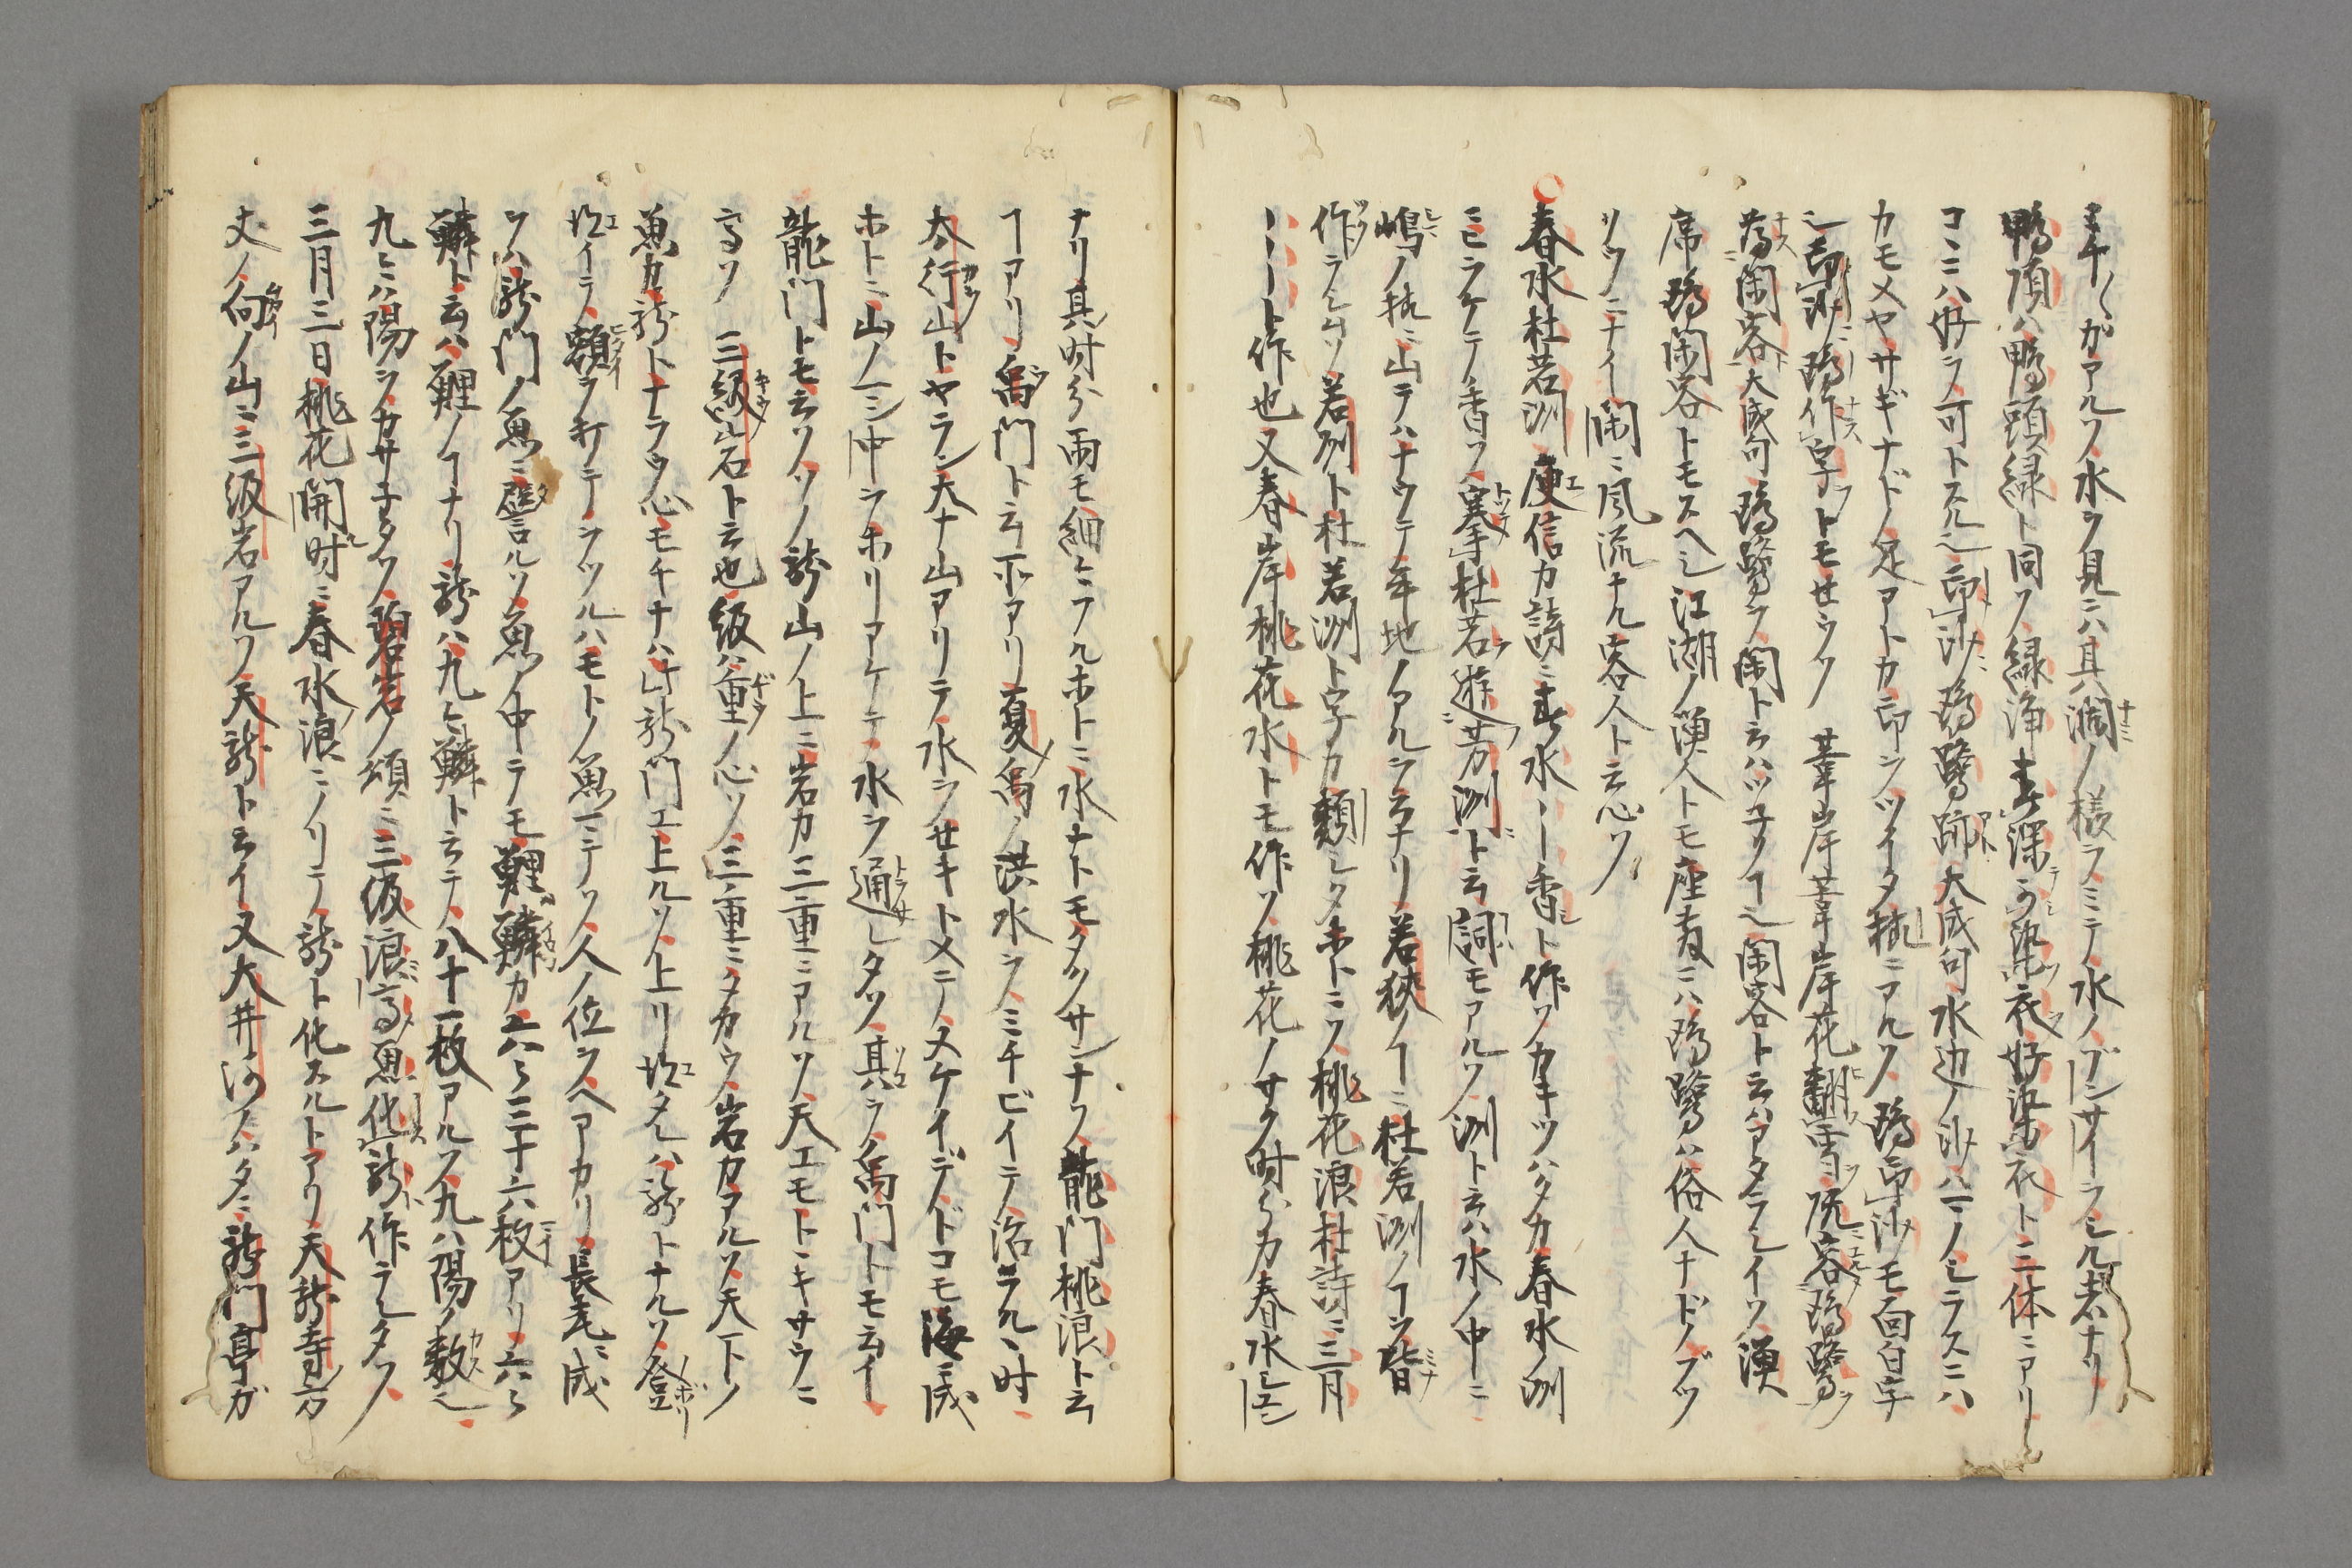 ミチ〱ガアルソ水ヲ見ニハ其凋ノ様ヲミテ水ノブンサイヲシル者ナリ
鴨頂ハ鴨頭緑ト同ソ緑浄春深可染衣好染衣ト二体ニアリ
コヽニハ好ヲ可トスル也印沙鴎鷺跡大成句水辺ノ沙ハ一ノミラスニハ
カモメヤサギナドノ足アトカ印シツイタ様ニアルソ鴎印沙モ面白字
也印沙鴎作字トモせウソ葦岸葦岸花翻雪ソ阮客鴎鷺
為閑客大成句鴎鷺ヲ閑ト云ハツ子ノ丁也閑客ト云ハアタラシイソ漁
席鴎閑客トモスヘシ江湖ノ漁人トモ座者ニハ鴎鷺ハ俗人ナドノブツ
リソニナイ閑ニ風流ナル客人ト云心ソ
春水杜若洲庾信カ詩ニ春水ーー香ト作ソカキツハタカ春水ノ洲
ニヒラケテ香ソ搴杜若遊芳洲ト云詞モアルソ洲ト云ハ水ノ中ニ
嶋ノ様ニ山テハナウテ平地ノアルヲ云ナリ若狹ノ丁ニ杜若洲ノ丁ヲ皆
作ラレタソ若州ト杜若洲ト字カ類シタホトニソ桃花浪杜詩ニ三月
ーーート作也又春岸桃花水トモ作ソ桃花ノサク時分カ春水ニ云シ
ナリ其時分雨モ細々フルホトニ水ナトモタクサンナソ龍門桃浪ト云
丁アリ禹門ト云所アリ夏禹ノ洪水ヲミチビイテ治ラルヽ時
太行山トヤラン大ナ山アリテ水ヲせキトメニノメケイデドコモ海ニ成
ホトニ山ノ一シ中ヲホリアケテ水ヲ通シタソ其ヲ禹門トモ云イ
龍門トモ云ソソノ龍山ノ上ニ岩カ三重ニアルソ天エモトヽキサウニ
高ソ三級岩ト云也級ハ重ノ心ソ三重ニタカウ岩カアルソ天下ノ
魚カ龍ト ナラウ心モチナハ此龍門エ上ルソ上リ垃タレハ龍トナルソ登
垃イラ額ヲ打テヲツルハモトノ魚ニテソ人ノ位ヲヘアカリ長老ニ成
ソハ龍門ノ魚ニ譬ルソ魚ノ中テモ鯉ハ鱗カ六々三十六枚アリ六々
鱗ト云ハ鯉ノ丁ナリ龍ハ九々鱗ト云テ八十一枚アルソ九ハ陽ノ数也
九々ハ陽ヲカサ子タソ碧岩ノ頌ニ三級浪高魚化龍作ラレタソ
三月三日桃花開時ニ春水ノ浪ニノリテ龍ト化スルトアリ天龍寺ノ方
丈ノ向ノ山ニ三級岩アルソ天龍ト云イ又大井河ノハタニ龍門亭ガ